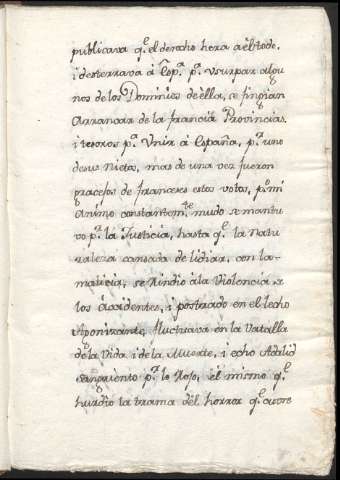 publicava q.e el derecho hera aëbtode.
i desterrava á Esp.a p.a vsurpar algu
nos de los Dominios de ella, se fingian
Arrancar de la francia Provincias.
i tesoros p.a Vnir á España, p.a uno
desus Nietos, mas de una vez fueron
gracejos de franceses estos votos, p.o mi
Animo constantem.te mudo se mantu
vo p.r la Justicia, hasta q.e la Natu
raleza cansada de lidiar, con la
malicia, se Rindio ála Violencia de
los Accidentes, i postrado en el lecho
Agonizante, fluctuava en la Vatalla
de la Vida i de la Muerte, i echo Adalid
sangriento p.r lo Rojo, el mismo q.e
hurdio la trama del horror q.e